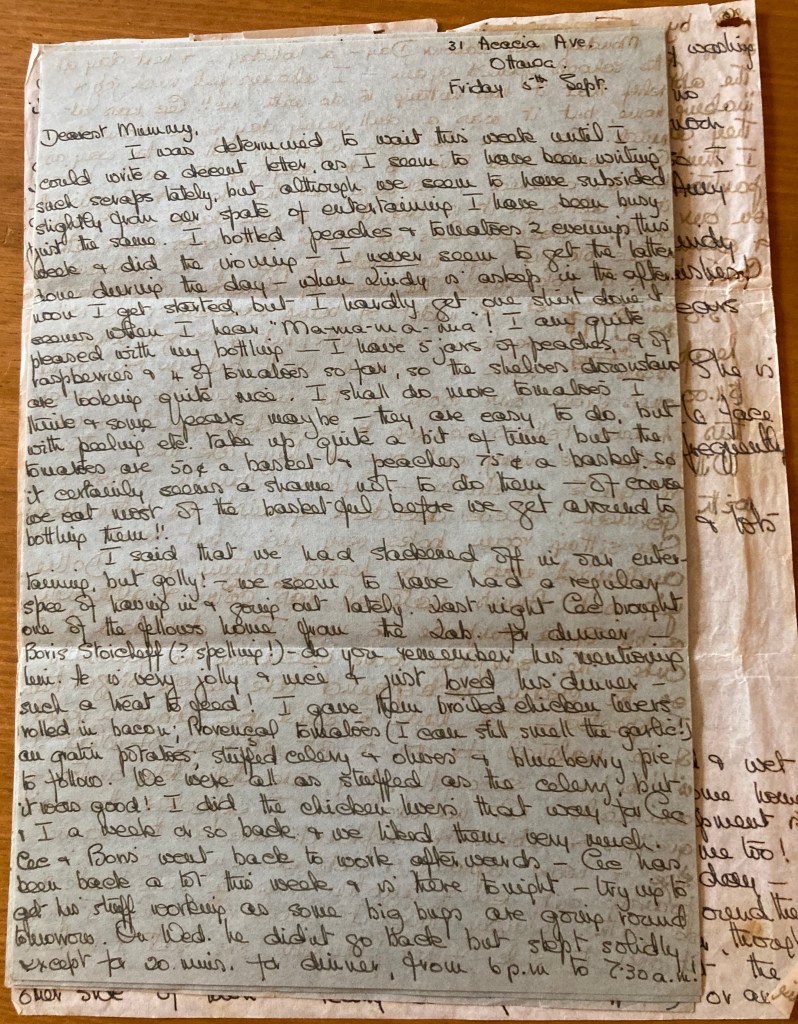 31 Acacia Ave.
Ottawa.
Friday 5th Sept.
Dearest Mummy,
I was determined to wait this week until I
could write a decent letter, as I seem to have been writing
such scraps lately, but although we seem to have subsided
slightly from our spate of entertaining I have been busy
just the same. I bottled peaches & tomatoes 2 evenings this
week & did the ironing – I never seem to get the latter
done during the day – when Lindy is asleep in the after-
noon I get started, but I hardly get one shirt done it
seems when I hear "Ma-ma-ma-ma"! I am quite
pleased with my bottling – I have 5 jars of peaches, 9 of
raspberries & 4 of tomatoes so far, so the shelves downstairs
are looking quite nice. I shall do more tomatoes I
think & some pears maybe – they are easy to do, but
with peeling etc. take up quite a bit of time, but the
tomatoes are 50¢ a basket & peaches 75¢ a basket, so
it certainly seems a shame not to do them – of course
we eat most of the basketful before we get around to
bottling them!!
I said that we had slackened off in our enter-
taining, but golly! – we seem to have had a regular
spee of having in & going out lately. Last night Cec brought
one of the fellows home from the Lab. for dinner –
Boris Stoicheff (? spelling!) – do you remember his mentioning
him. He is very jolly & nice & just loved his dinner –
such a treat to feed! I gave them broiled chicken livers
rolled in bacon; Provençal tomatoes (I can still smell the garlic!)
au gratin potatoes; stuffed celery & olives & blueberry pie
to follow. We were all as stuffed as the celery, but
it was good! I did the chicken livers that way for Cec
& I a week or so back & we liked them very much.
Cec & Boris went back to work afterwards – Cec has
been back a lot this week & is there tonight – trying to
get his stuff working as some big bugs are going round
tomorrow. On Wed. he didn't go back but slept solidly
except for 20 mins. for dinner, from 6 p.m to 7:30 a.m!
washing
ears
She is
face
frequently
& lots
& wet
me too!
day –
round the
through
the
other side of
or